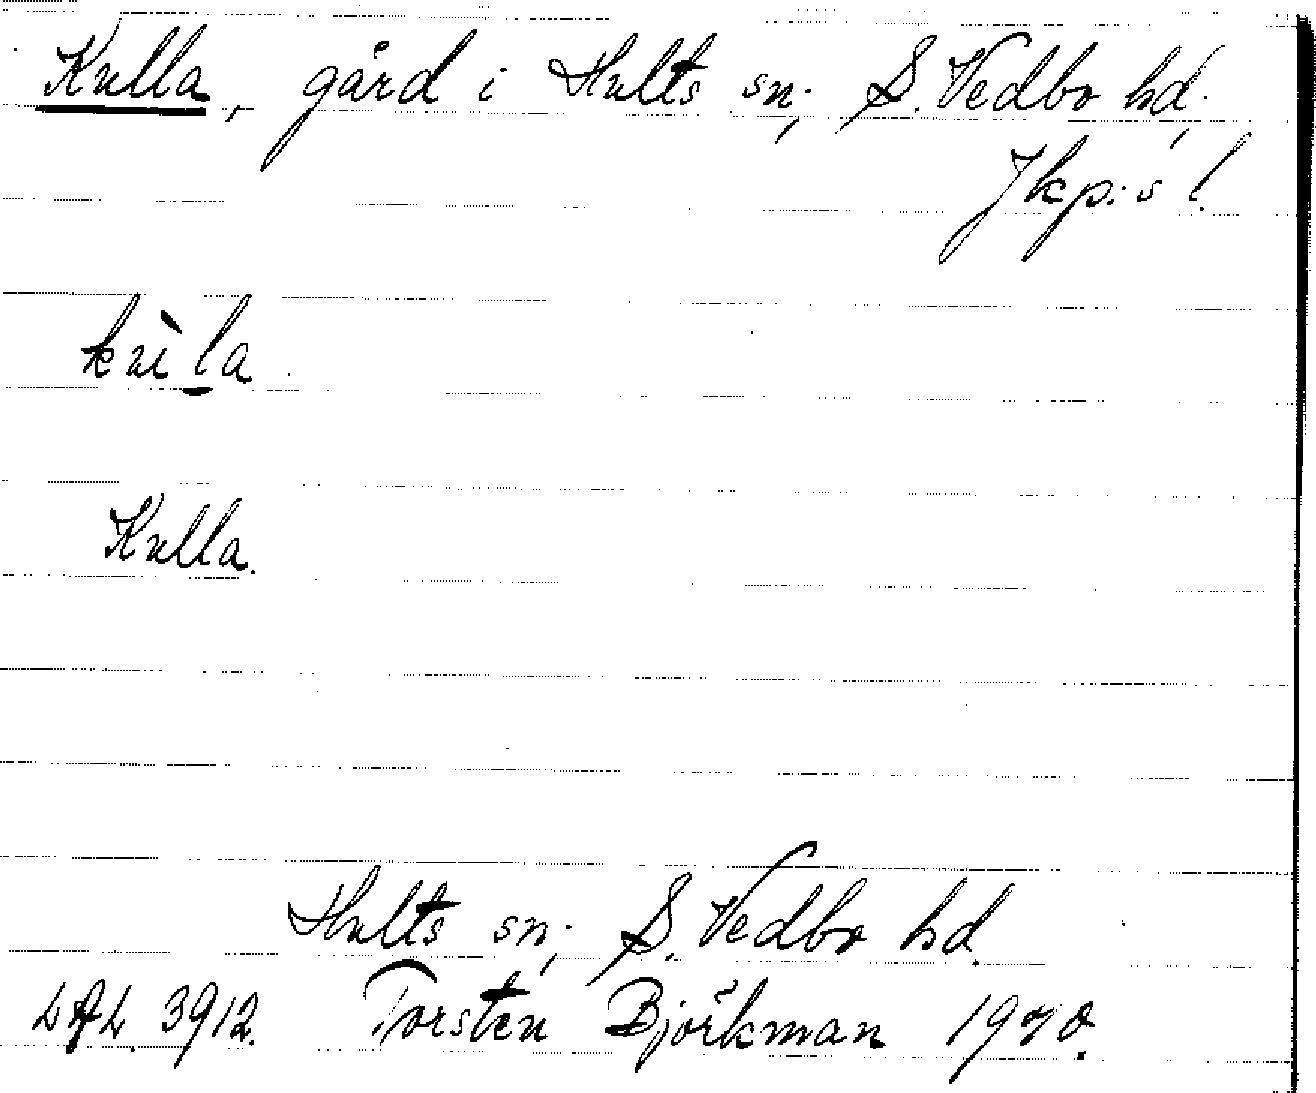 Kulla, gård i Hults sn, S. Vedbo hd.,
Jkp:s l.
kùl̠a
Kulla.
Hults sn, S. Vedbo hd.
3912. Torsten Björkman